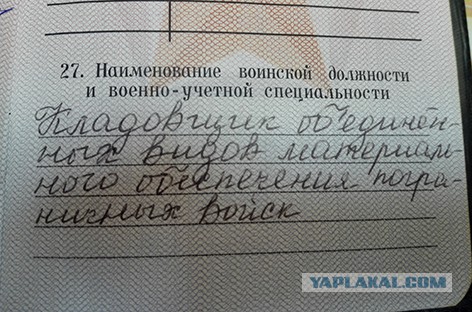 27. Наименование воинской должности
и военно-учетной специальности
Кладовщик объединён-
ных видов материаль-
ного обеспечения погра-
ничных войск
YAPLAKAL.COM